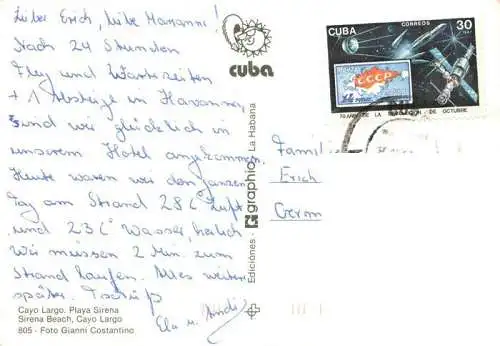 Lieber Erich, liebe Marianne!
Nach 24 Stunden
Flug und Wartezeiten
+ 1 in Havanna,
sind wir glücklich in
unserem Hotel angekommen.
Heute waren wir den ganzen
Tag am Strand 28 C Luft
und 23 C Wasser, herlich
Wir müssen 2 Min. zum
Strand laufen. Alles weitere
später. Tschüß
Ela u.
Cayo Largo. Playa Sirena
Sirena Beach, Cayo Largo
805 - Foto Gianni Costantino
cuba
Ediciónes graphic La Habana
CUBA CORREOS 30
CCCP
DE LA REVOLUCION DE OCTUBRE
Familie
Erich
Germ